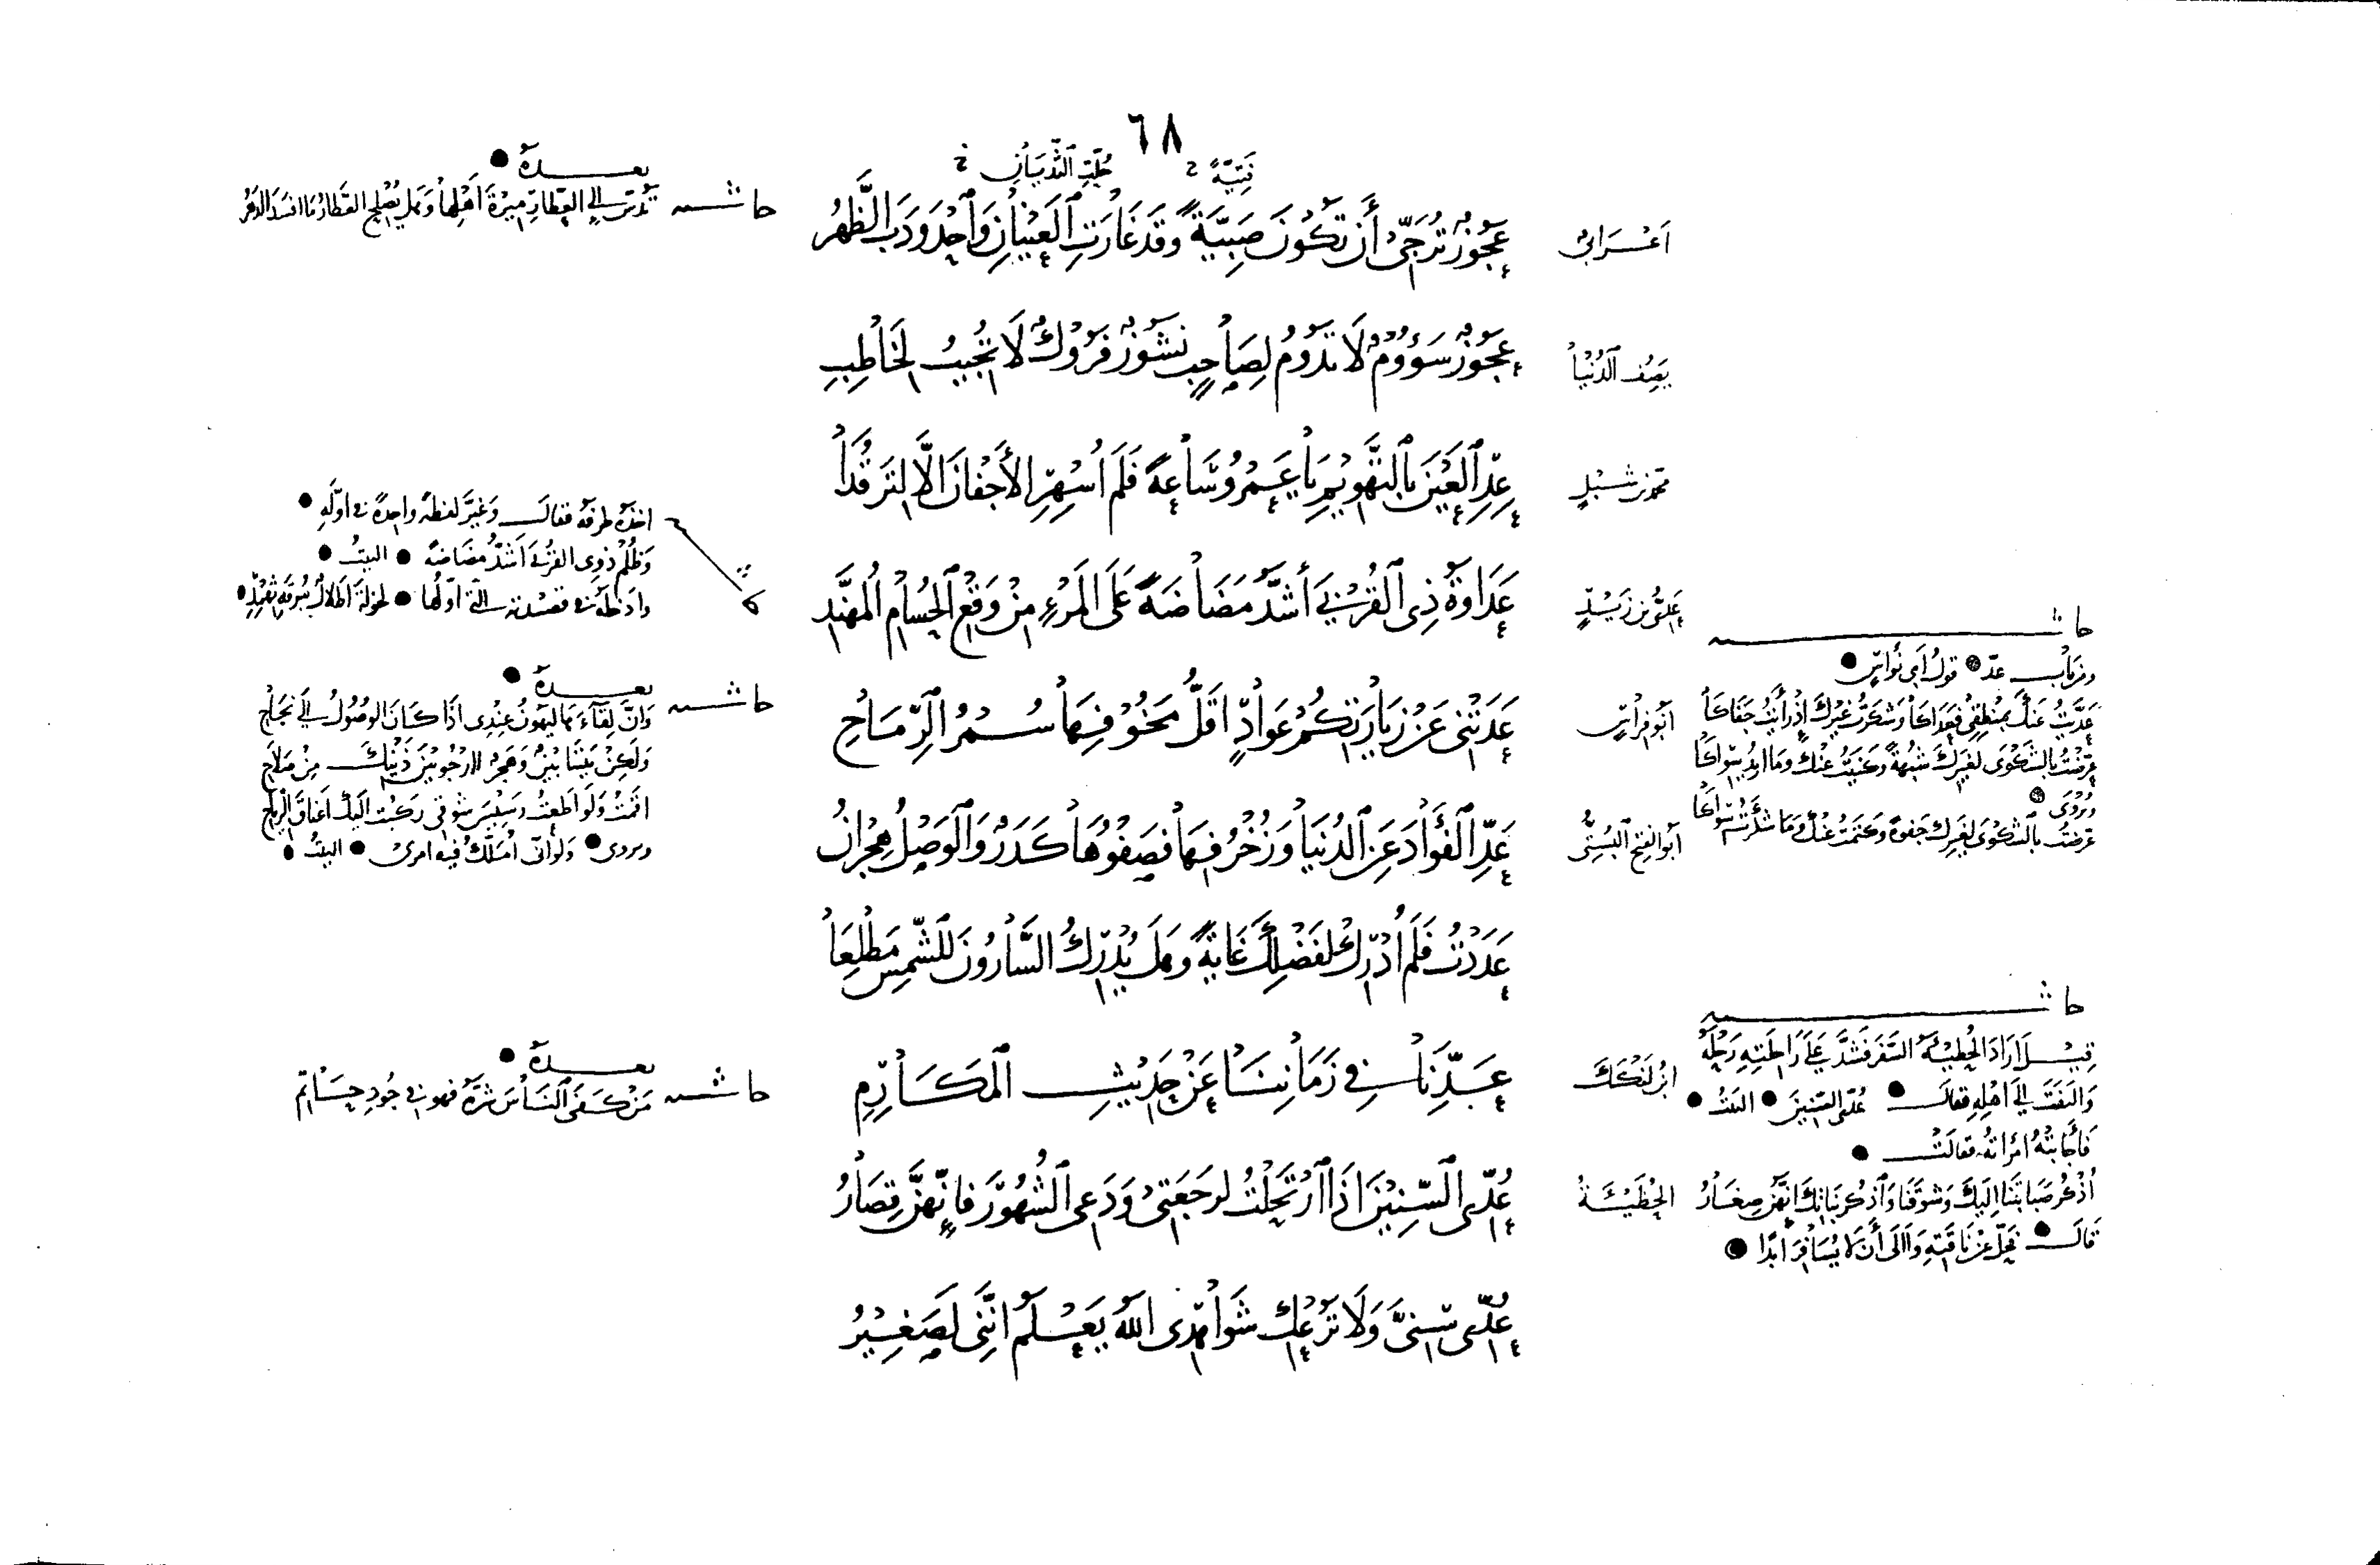 ٦٨
فَتِيَّةً خ
خُلَّةِ الثَّدْيَانِ خ
أعرابي
عَجُوزٌ تُرَجِّي أَن تَكُونَ صَبِيَّةً وَقَد غَارَتِ العَيْنَانِ وَاحْدَوْدَبَ الظَّهْرُ
حاشية
بعده
تَدُسُّ إلى العَطَّارِ مِيرَةَ أَهْلِهَا وَهَل يُصْلِحُ العَطَّارُ مَا افْسَدَ الدَّهْرُ
يَصِفُ الدُّنْيَا
عَجُوزٌ سَؤُومٌ لَا تَدُومُ لِصَاحِبٍ نَشُوزٌ فَرُوكٌ لَا تُجِيبُ لِخَاطِبِ
محمد بن شِبْلٍ
عِدِ العَيْنَ بِالتَّهْوِيمِ يَا عَمْرُو سَاعَةً فَلَم اُسْهِرِ الأَجْفَانَ الَّا لِتَرْقُدَا
عَدِيُّ بن زَيْدٍ
عَدَاوَةُ ذِي القُرْبَى أَشَدُّ مَضَاضَةً عَلَى المَرْءِ مِنْ وَقْعِ الحُسَامِ المُهَنَّدِ
اخذه طرفه فقال وَغَيَّرَ لفظةً واحدةً في اوَّلِهِ
وَظُلْمُ ذَوِي القُرْبَى اَشَدُّ مَضَاضَةً البيتُ
وادخله في قصيدته التي اوّلُها لخولة اَطلالٌ بِبُرْقَةِ ثَهْمَدِ
أبو فِراسٍ
عَدَتْنِي عَنْ زِيَارَتِكُمْ عَوَادٍ اَقَلُّ مَخُوفِهَا سُمْرُ الرِّمَاحِ
حاشية
بعده
وَاِنَّ لِقَاءَهَا لَيَهُونُ عِنْدِي اِذَا كَانَ الوُصُولُ إلى نَجَاحِ
وَلَكِنْ بَيْنَنَا بَيْنٌ وَهَجْرٌ اَارْجُو بَيْنَ ذَيْنِكَ مِنْ صَلَاحِ
اقَمْتُ وَلَو اطعتُ رَسِيْسَ شوقي رَكِبْتُ اِلَيْكَ اَعْنَاقَ الرِّيَاحِ
ويروى وَلَو أنّي اُمَلَّكُ فيهِ امري البيتُ
حاشية
ومن باب عدّ قولُ اَبِي نُواسٍ
عَدَّيْتُ عَنْكَ بِمَنْطِقِي فَعَدَاكَا وَشَكَوْتُ غَيْرَكَ اِذْ رأَيْتُ جَفَاكَا
عَرَّضْتُ بِالشَكْوَى لِغَيْرِكَ شُبْهَةً وَكَنَيْتُ عَنْكَ وَمَا اُرِيدُ سِوَاكَا
وَيُرْوَى
عَرّضتُ بِالشَكْوَى لِغَيْرِكَ جَفوةً وَكَتَمْتُ عَنْكَ وَمَا سِوَاكَا
أبو الفتح البُسْتِيُّ
عَدِّ الفُؤَادَ عَنِ الدُّنْيَا وَزُخْرُفِهَا فَصَفْوُهَا كَدَرٌ وَالوَصْلُ هِجْرَانُ
عَدَدْتُ فَلَم أُدْرِكْ لِفَضْلِكَ غَايَةً وَهَل يُدْرِكُ السَّارُونَ لِلشَّمسِ مَطْلِعَا
ابن لَنْكَكَ
عَدِّنَا فِي زَمَانِنَا عَنْ حَدِيْثِ المَكَارِمِ
حاشية
بعده
مَنْ كَفَى النَّاسَ شَرَّهُ فهو فِي جُودِ حَاتِمِ
حاشية
قِيلَ ارَادَ الحُطَيْئَةُ السَّفَرَ فَشَدَّ عَلَى رَاحِلَتِهِ رَحْلَهُ
وَالتَفَتَ إلى اَهْلِهِ فقالَ عُدِّي السِّنِينَ البيتُ
فَأَجَابَتْهُ امْرَاتُهُ فَقَالَتْ
اُذْكُرْ صَبَابَتَنَا اِلَيْكَ وَشَوْقَنَا وَاذْكُرْ بَنَاتِكَ اِنَّهُنَّ صِغَارُ
قَالَ فَحَلَّ عَنْ نَاقَتِهِ وَآلَى أَنْ لَا يُسَافِرَ اَبَدًا
الحُطَيْئَةُ
عُدِّي السِّنِيْنَ اِذَا ارْتَحَلْتُ لِرَجْعَتِي وَدَعِي الشُّهُوْرَ فَاِنَّهُنَّ قِصَارُ
عُدِّي سِنِيَّ وَلَا تَرُعْكِ شَوَاهِدِي اللهُ يَعْلَمُ اِنَّنِي لَصَغِيْرُ